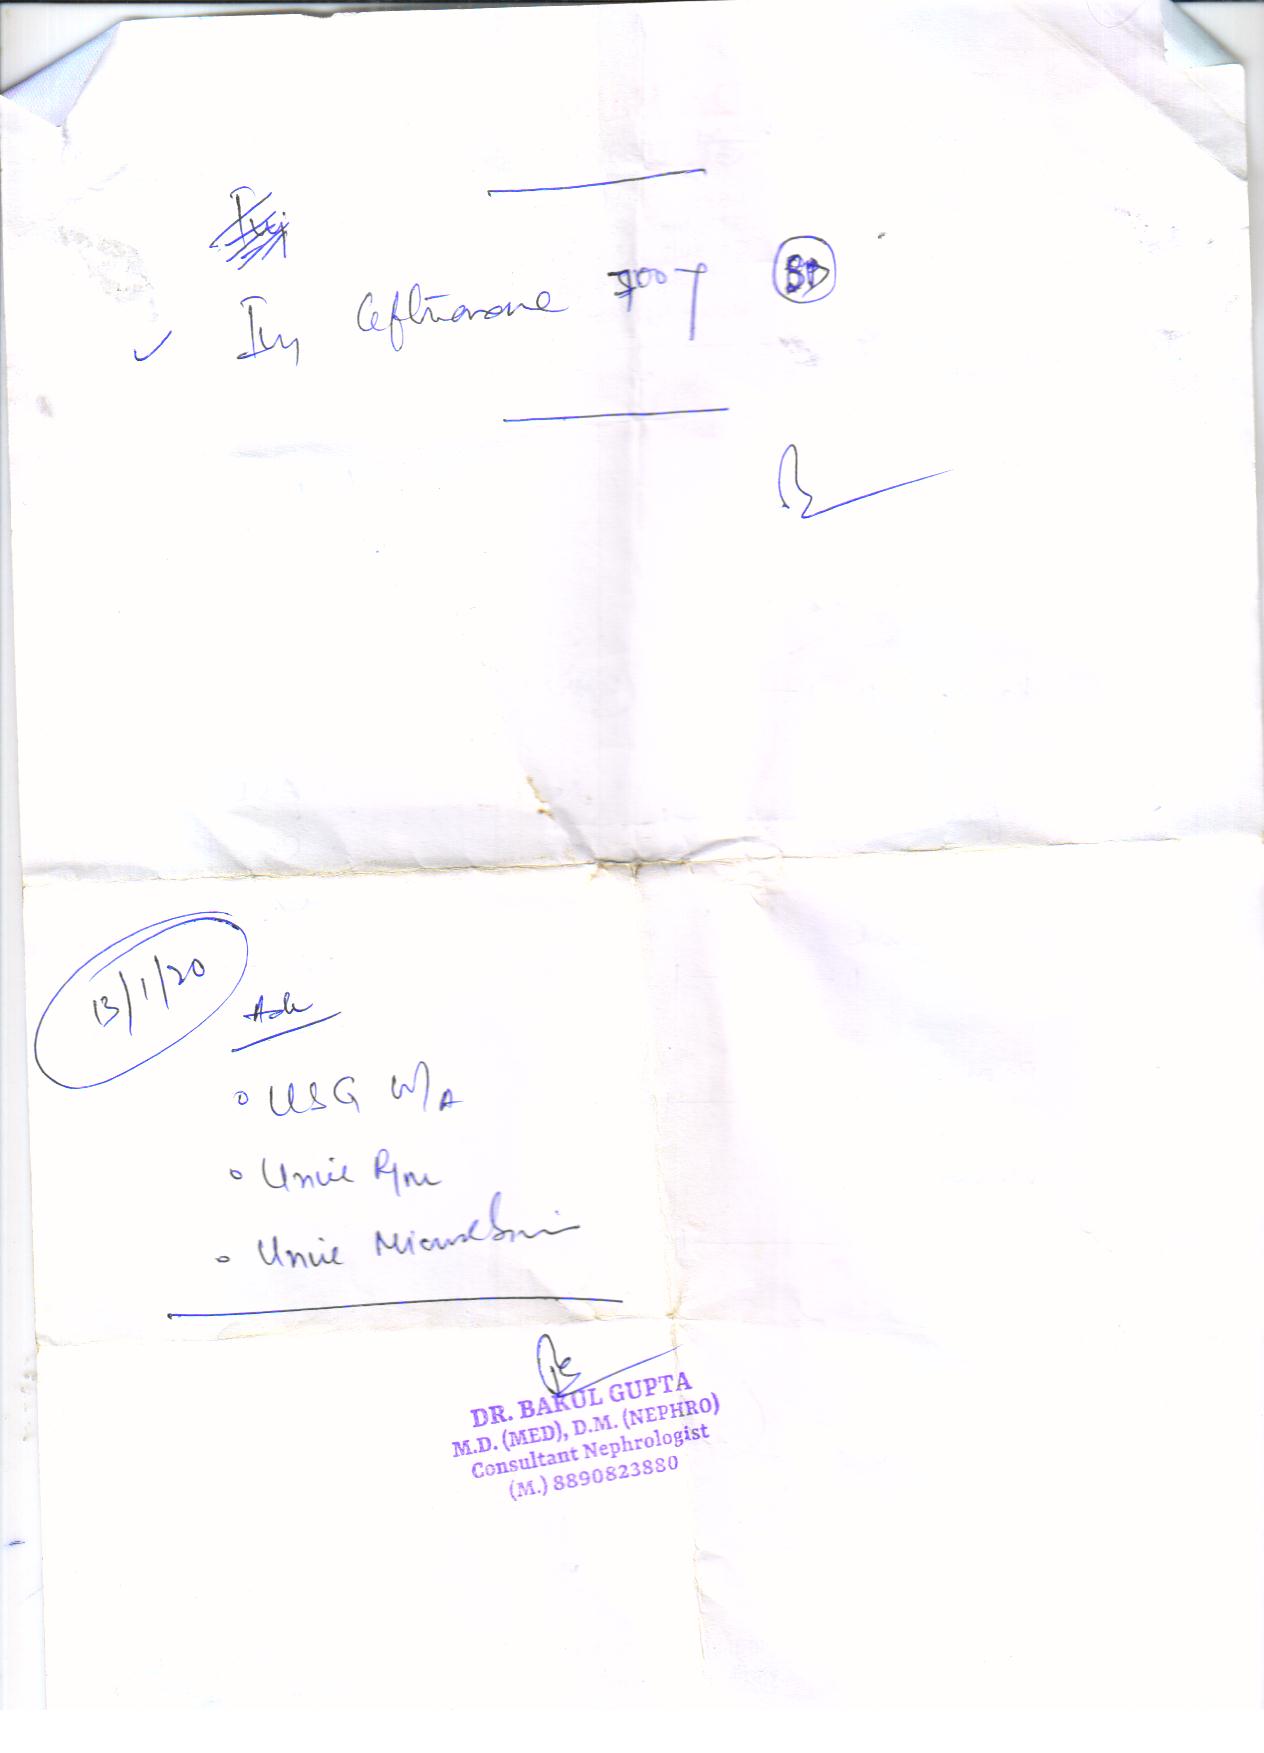 Inj
✓ Inj Ceftriaxone BD
13/1/20
Adv
○ USG W/A
○ Urine R/M
○ Urine Microalbumin
DR. BAKUL GUPTA
M.D. (MED), D.M. (NEPHRO)
Consultant Nephrologist
(M.) 8890823880